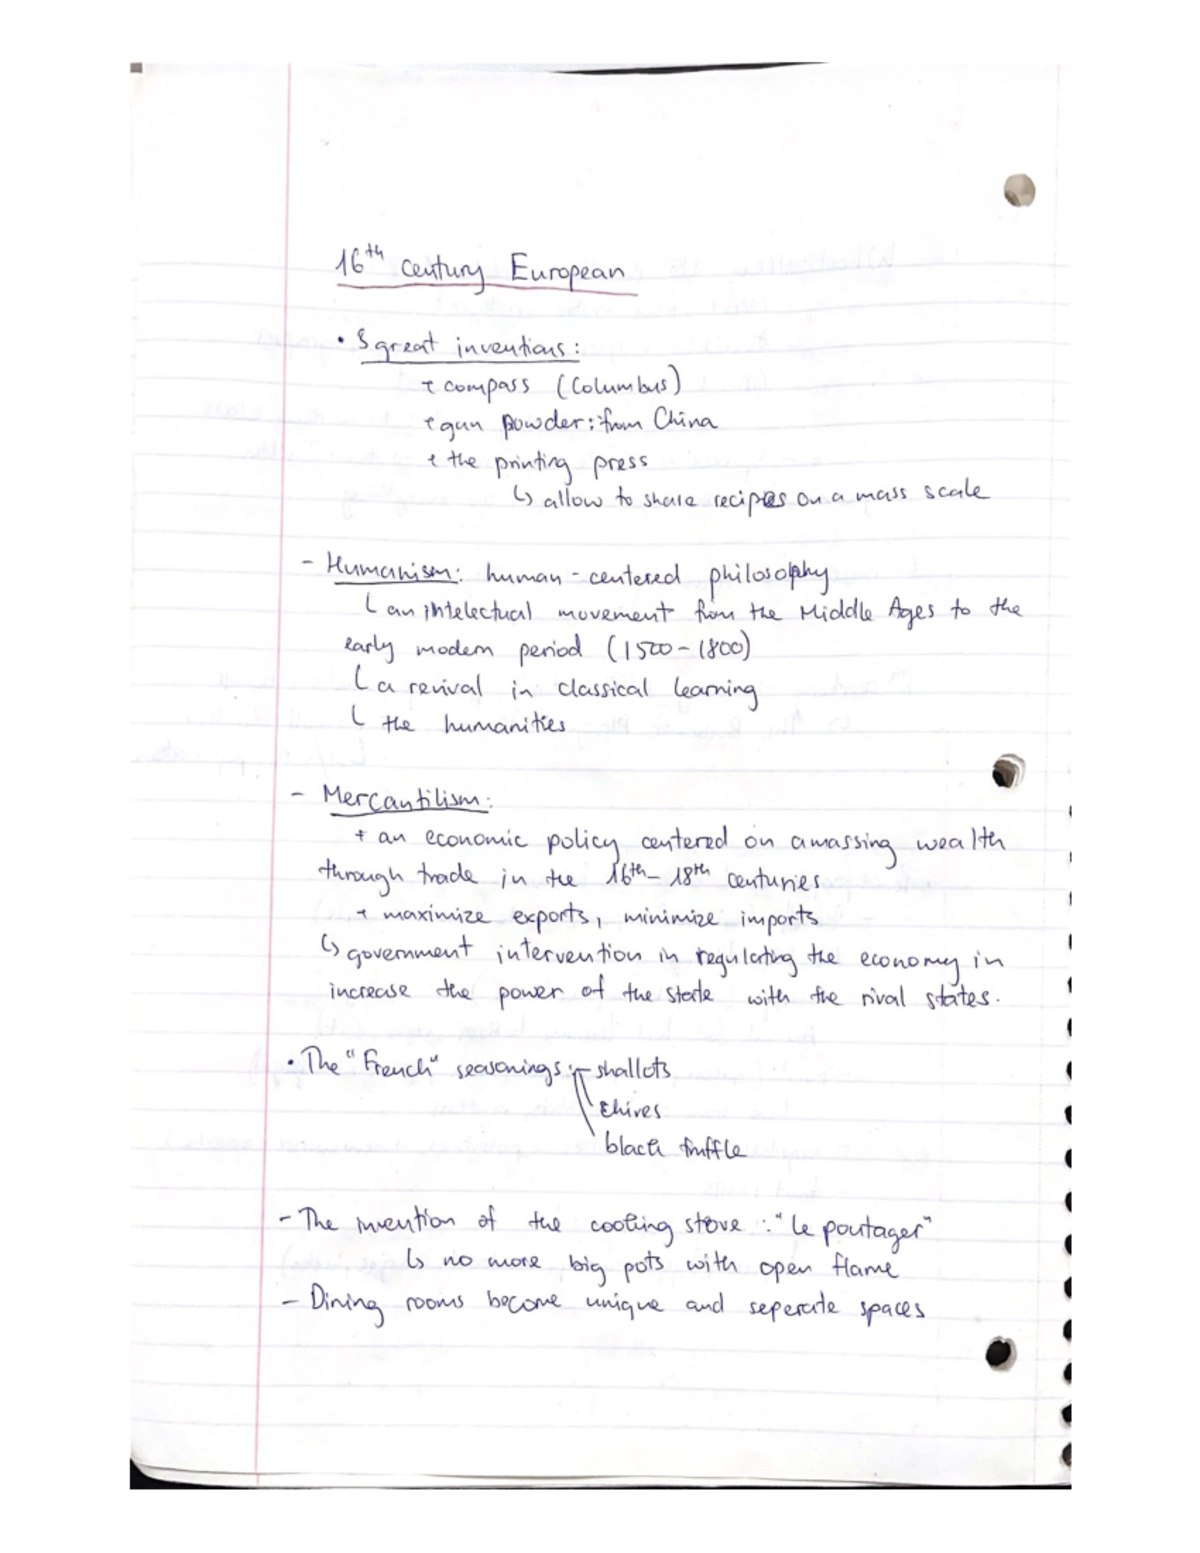 16th century European
• 3 great inventions:
+ compass (Columbus)
+ gun powder: from China
+ the printing press
↳ allow to share recipes on a mass scale
- Humanism: human-centered philosophy
└ an intelectual movement from the Middle Ages to the
early modern period (1500-1800)
└ a revival in classical learning
└ the humanities
- Mercantilism:
+ an economic policy centered on amassing wealth
through trade in the 16th-18th centuries
+ maximize exports, minimize imports
↳ government intervention in regulating the economy in
increase the power of the state with the rival states.
• The "French" seasonings: - shallots
chives
black truffle
- The invention of the cooking stove: "le poutager"
↳ no more big pots with open flame
- Dining rooms become unique and seperate spaces